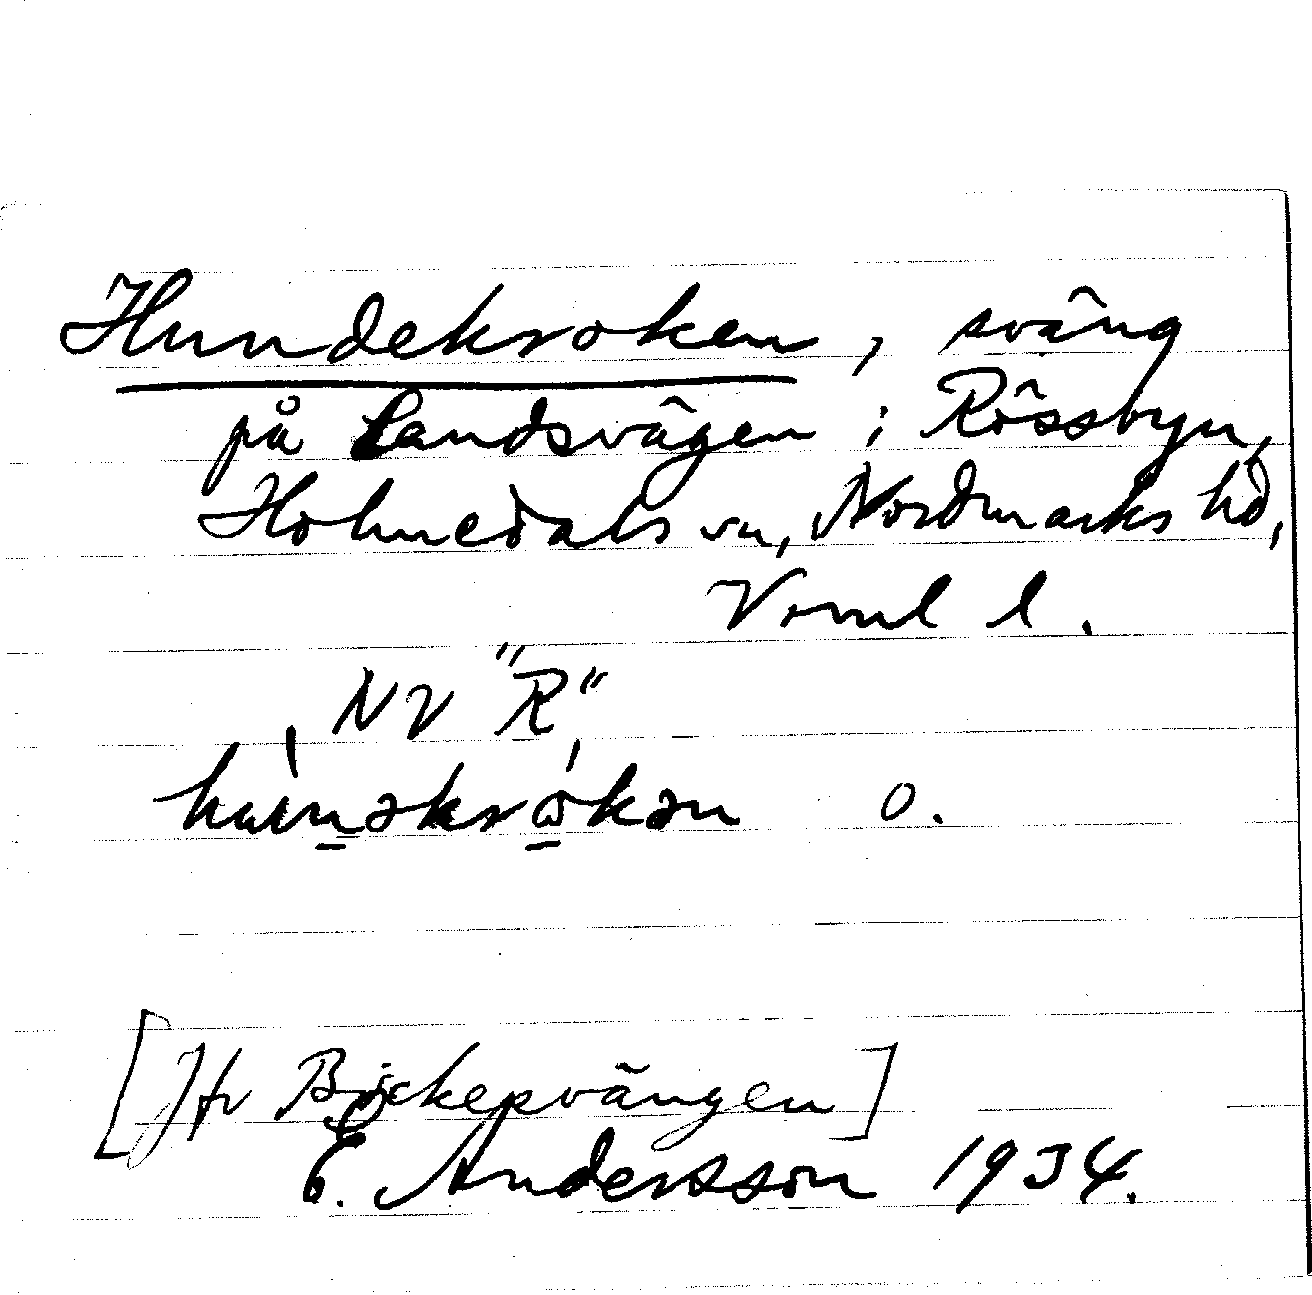 Hundekroken, sväng
på Landsvägen i Rössbyn,
Holmedals sn, Nordmarks hd,
Vrml l.
NV "R"
o.
[Jfr svängen]
E. Andersson 1934.